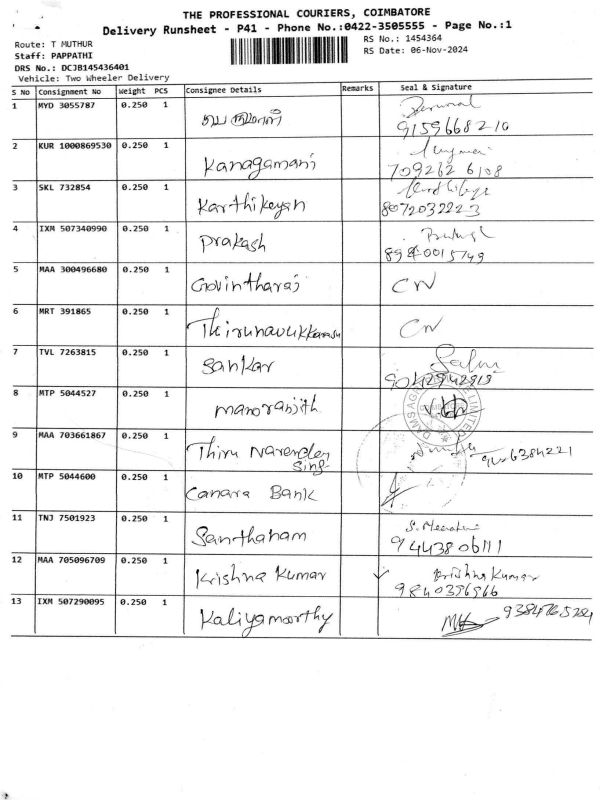 THE PROFESSIONAL COURIERS, COIMBATORE
Delivery Runsheet - P41 - Phone No.:0422-3505555 - Page No.:1
Route: T MUTHUR
RS No.: 1454364
Staff: PAPPATHI
RS Date: 06-Nov-2024
DRS No.: DCJB145436401
Vehicle: Two Wheeler Delivery
S No Consignment No Weight PCS Consignee Details Remarks Seal & Signature
1 MYD 3055787 0.250 1
9159668210
2 KUR 1000869530 0.250 1 Kanagamani
709262 6108
3 SKL 732854 0.250 1 Karthikeyan
8072032223
4 IXM 507340990 0.250 1 Prakash
8940015749
5 MAA 300496680 0.250 1 Govintharaj CN
6 MRT 391865 0.250 1 Thirunavukkarasu CN
7 TVL 7263815 0.250 1 Sankar
9042942919
8 MTP 5044527 0.250 1 Manoranjith
9 MAA 703661867 0.250 1 Thiru Narender
Sing
10 MTP 5044600 0.250 1 Canara Bank
11 TNJ 7501923 0.250 1 Santhanam
9443806111
12 MAA 705096709 0.250 1 Krishna Kumar Krishna Kumar
9840396966
13 IXM 507290095 0.250 1 Kaliyamoorthy